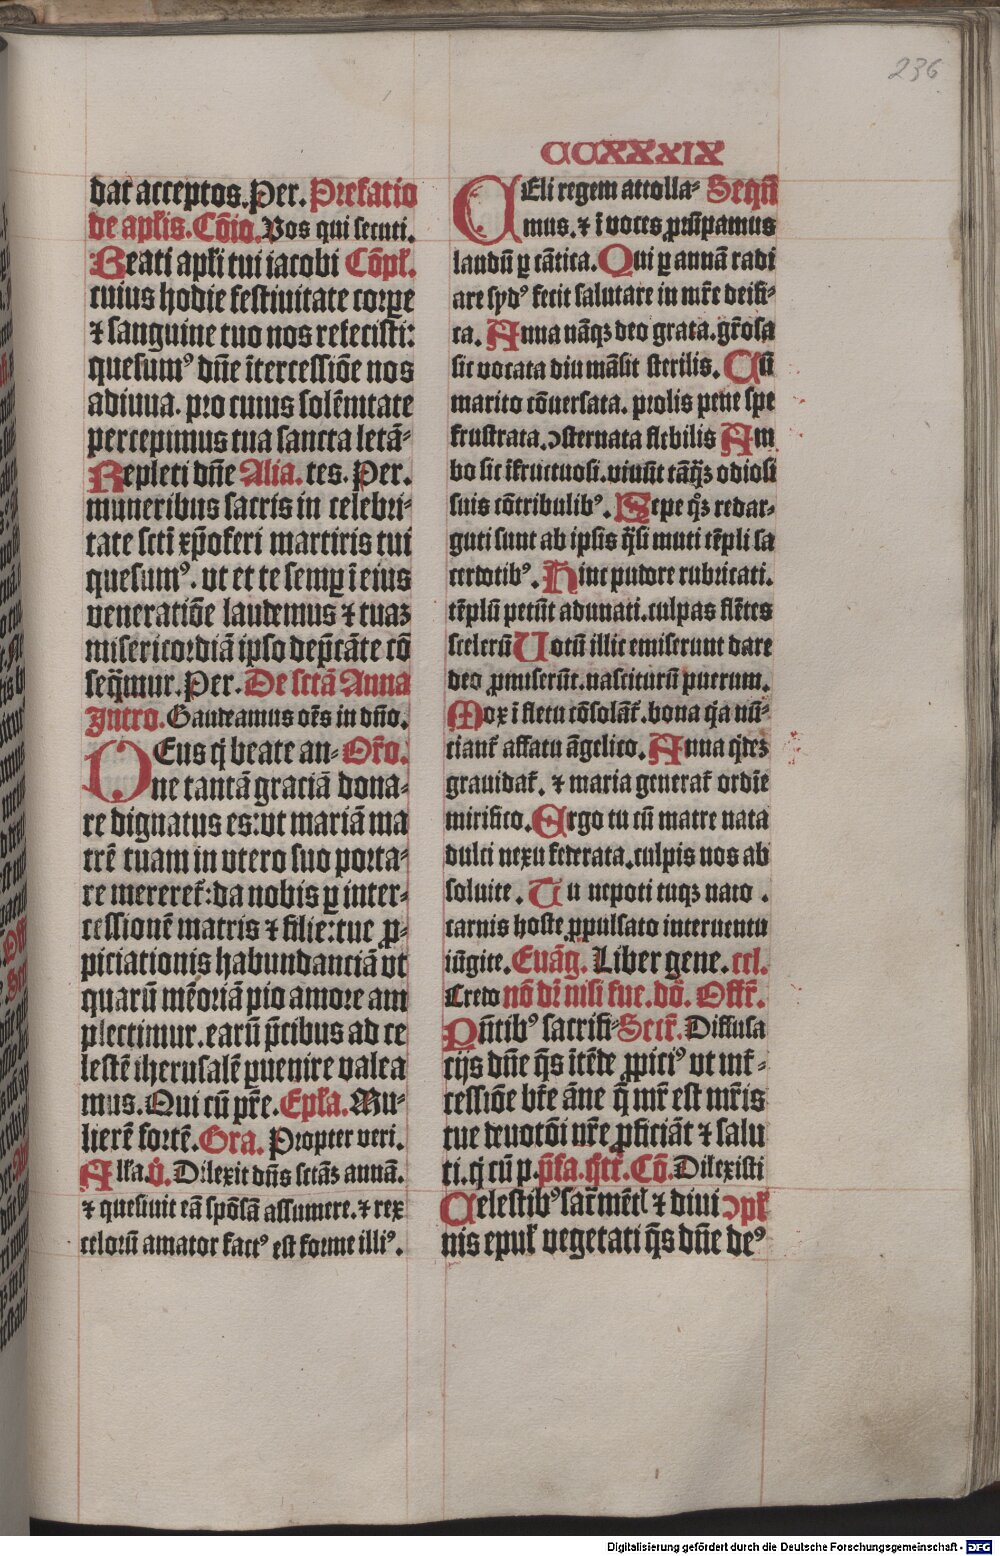 236
CCXXXIX
dat acceptos. Per. Prefatio
de apl'is. Cōio. Vos qui secuti.
Beati apl'i tui iacobi Cōpl'.
cuius hodie festiuitate corpe
⁊ sanguine tuo nos refecisti:
quesumꝰ dn̄e ītercessiōe nos
adiuua. pro cuius solēnitate
percepimus tua sancta letā-
Repleti dn̄e Alia. tes. Per.
muneribus sacris in celebri-
tate sctī xp̄oferi martiris tui
quesumꝰ. vt et te semꝑ ī eius
ueneratiōe laudemus ⁊ tuaꝫ
misericordiā ipso dep̄cāte cō
seq̄mur. Per. De sctā Anna
Intro. Gaudeamus oēs in dn̄o.
DEus q̇ beate an- Oro̅.
ne tantā graciā dona-
re dignatus es: vt mariā ma
trē tuam in vtero suo porta-
re mereret̄: da nobis ꝑ inter-
cessionē matris ⁊ filie: tue ꝓ-
piciationis habundanciā vt
quarū mēoriā pio amore am
plectimur. earū p̄cibus ad ce
lestē iherusalē ꝑuenire valea
mus. Qui cū pr̄e. Epl'a. Mu-
lierē fortē. Gra. Propter veri.
All'a. v̇. Dilexit dn̄s sctāꝫ annā.
⁊ quesiuit eā spōsā assumere. ⁊ rex
celorū amator factꝰ est forme illiꝰ.
CEli regem attolla- Seqn̄
mus. ⁊ ī voces ꝓrūpamus
laudū ꝑ cātica. Qui ꝑ annā radi
are sydꝰ fecit salutare in mr̄e deifi-
ca. Anna nāqꝫ deo grata. gr̄osa
sic vocata diu māsit sterilis. Cū
marito cōuersata. prolis pene spe
frustrata. ↄsternata flebilis Am
bo sic īfructuosi. viuūt tāq̄ꝫ odiosi
suis cōtribulibꝰ. Sepe qͦꝫ redar-
guti sunt ab ipsis q̄si muti tēpli sa
cerdotibꝰ. Hinc pudore rubricati.
tēplū petūt adunati. culpas flētes
scelerū Uotū illic emiserunt dare
deo ꝓmiserūt. nasciturū puerum.
Mox ī fletu cōsolāt̄. bona q̇a nū-
ciant̄ affatu āgelico. Anna q̇deꝫ
grauidat̄. ⁊ maria generat̄ ordīe
mirifico. Ergo tu cū matre nata
dulci nexu federata. culpis nos ab
solvite. Tu nepoti tuqꝫ nato.
carnis hoste ꝓpulsato interuentu
iūgite. Euāg. Liber gene. ccl.
Credo nō dr̄ nisi fue. dō. Offr̄.
Pn̄tibꝰ sacrifi- Secr̄. Diffusa
cijs dn̄e q̄s ītēde ꝓpiciꝰ vt int̄-
cessiōe btē āne q̄ mr̄ est mr̄is
tue deuotōi nr̄e ꝓficiāt ⁊ salu
ti. q̇ cū p. p̄fa. sct̄. Cō. Dilexisti
Celestibꝰ sacr̄mētl ⁊ diui ↄpl'
nis epul' vegetati q̄s dn̄e deꝰ
Digitalisierung gefördert durch die Deutsche Forschungsgemeinschaft - DFG